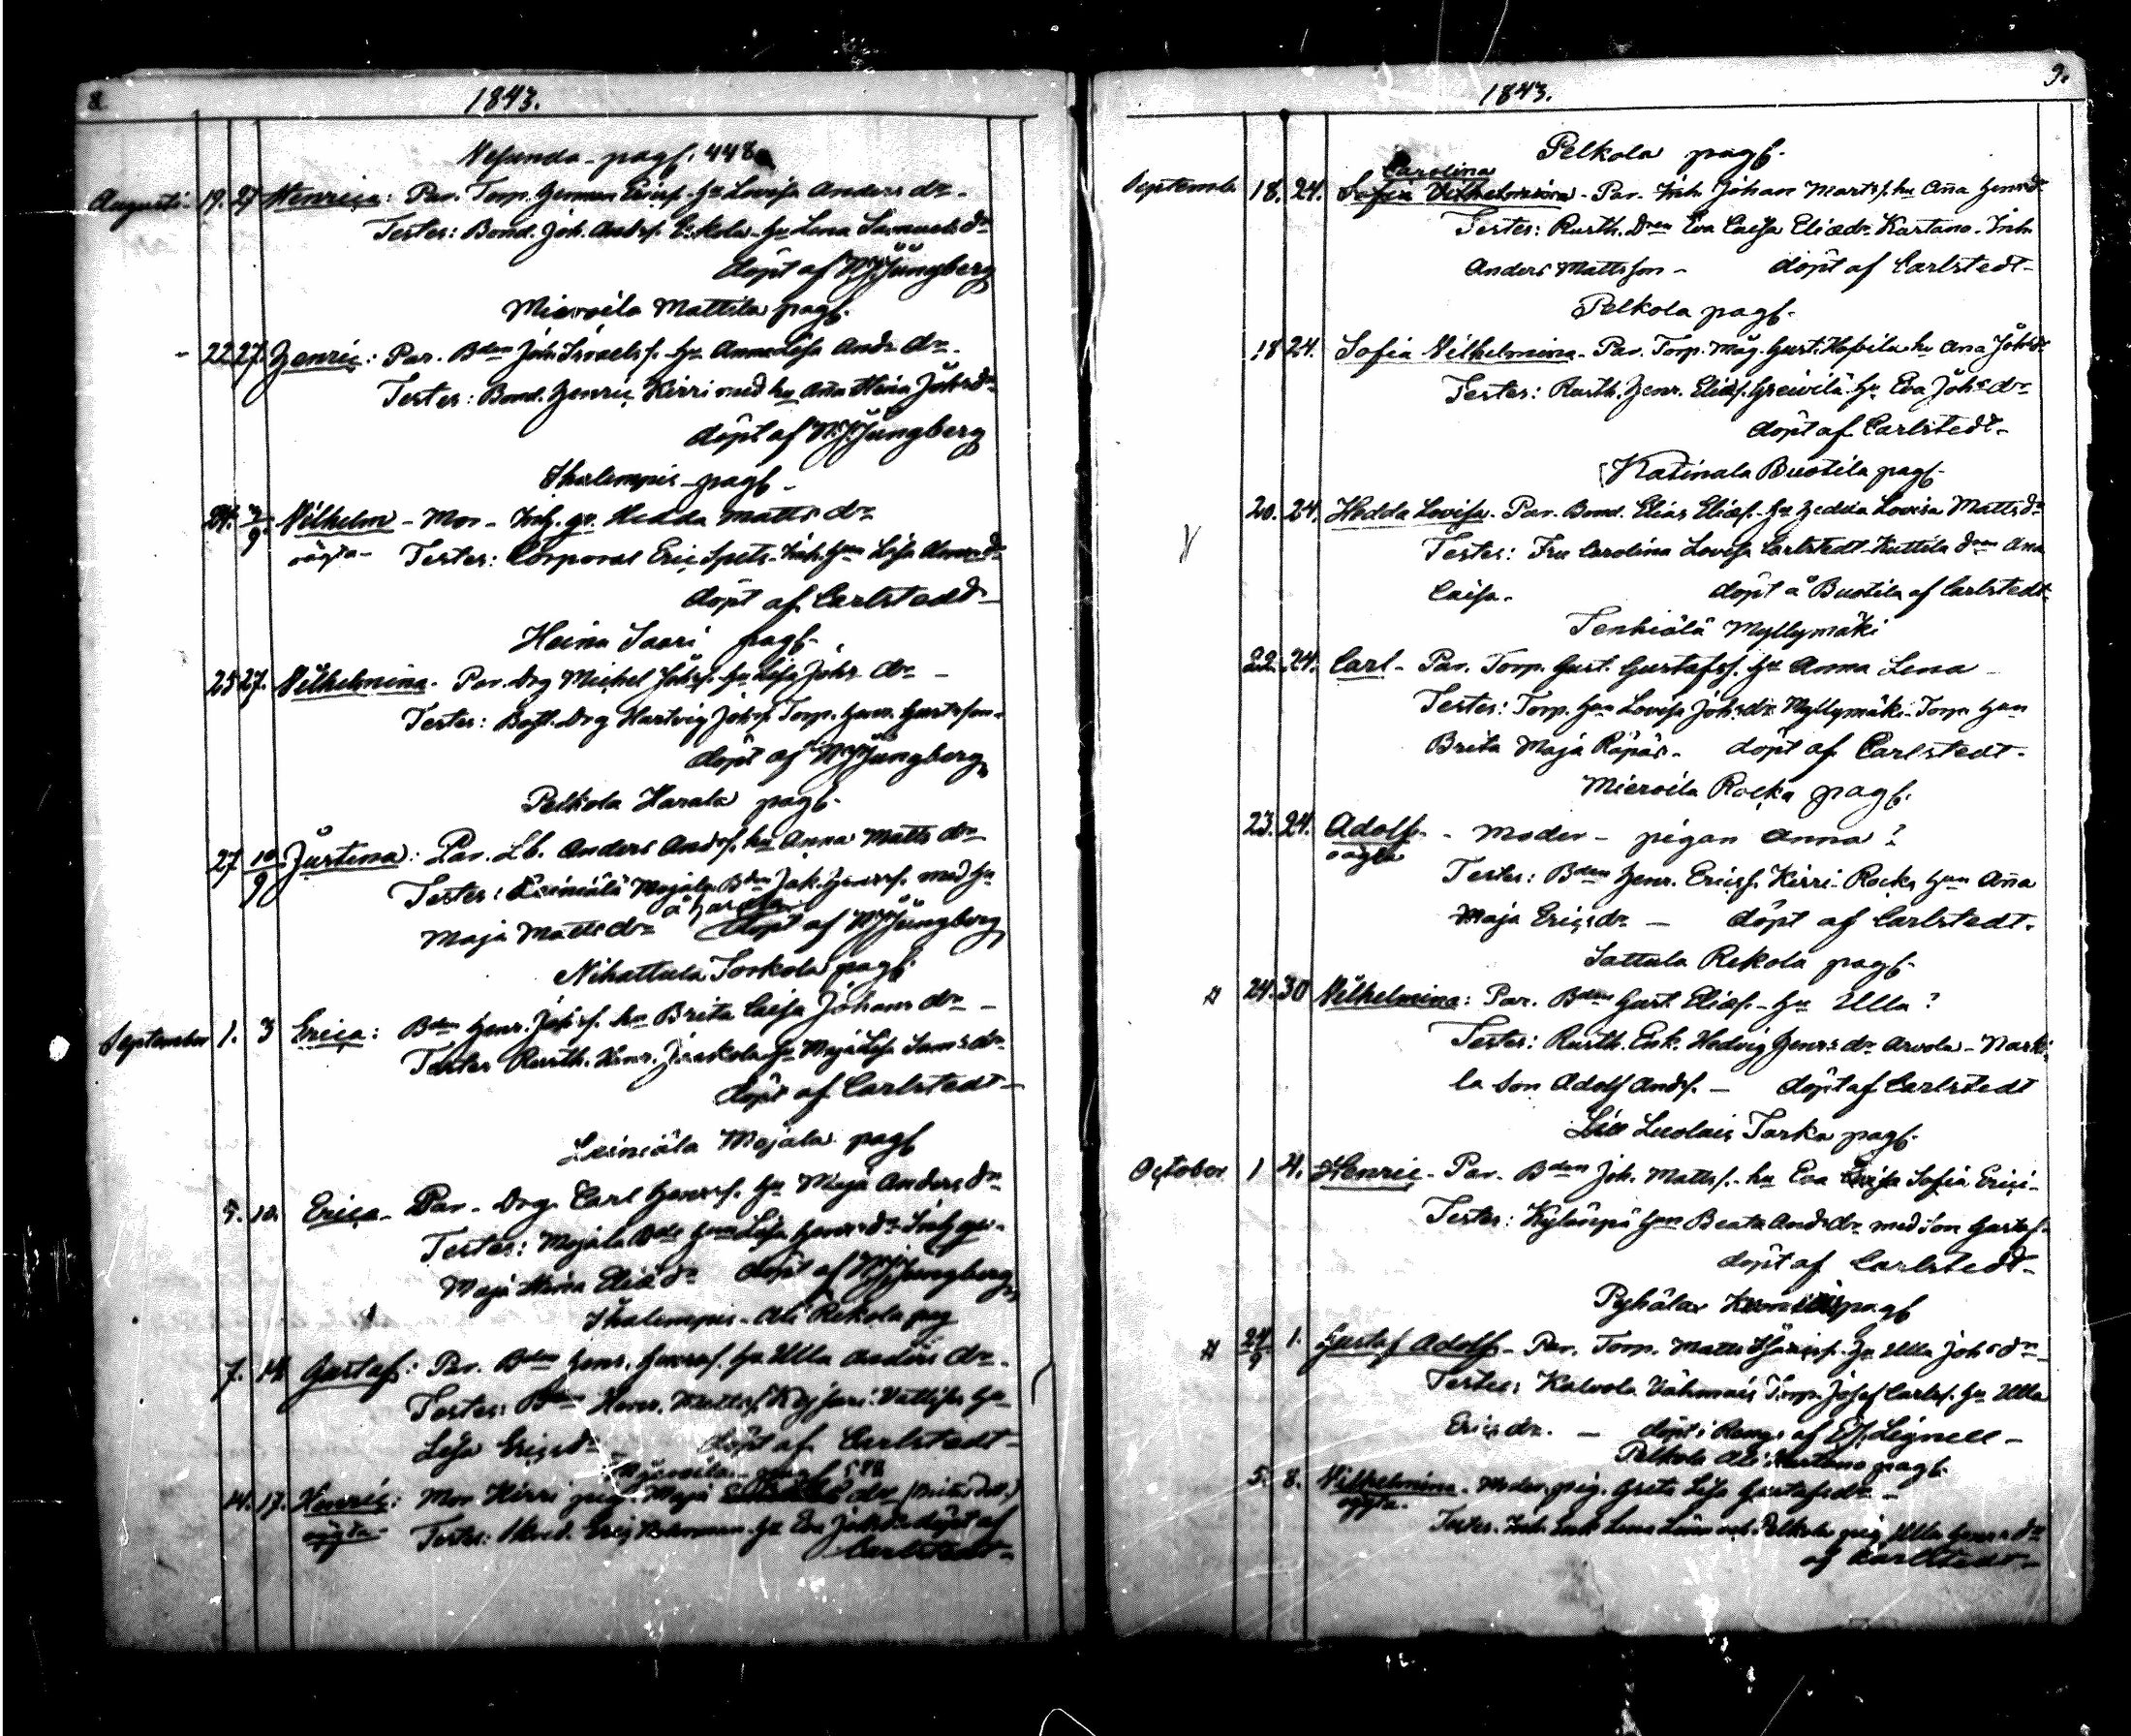 8
1843.
Nesunda - pagf. 448
Augusti 19. 27 Henrica: Par. Torp. Herman Ericsf. hu Lovisa Anders dr.
Testes: Bond. Joh. Andsf. hu Lena Samuels dr
döpt af Ljungberg
Miervila Mattila pagf.
22 27. Henric: Par. Bden Joh. Israelsf. hu Anna Lisa Ands dr.
Testes: Bond. Henric Kirri med hu Aña Maria Johsdr
döpt af Ljungberg
Ihalempis - pagf.
24. 3/9 Vilhelm - Mor - Inh. qv. Hedda Matts dr
oägta - Testes: Corporal Eric Spets - Inh. hun Lisa
döpt af Carlstedt -
Heina Saari pagf.
25 27. Vilhelmina. Par. Drg Michel Johsf. hu Lisa Johs dr -
Testes: Drg Hartvig Johsf. Torp. Gustafson.
döpt af Ljungberg
Pelkola Harala pagf.
27 10/9 Justina: Par. Lb. Anders Andsf. hu Anna Matts dr
Testes: Leiniälä Mojala Bden Jak. Henrsf. med hu
Maja Matts dr å Harala döpt af Ljungberg
Nihattula Sorkola pagf.
September 1. 3 Erica: Bden Henr. Johsf. hu Brita Caisa Johans dr -
Testes Rusth. Henr. Jaakola hu Maja Lisa Sams dr
döpt af Carlstedt -
Leiniäla Mojala pagf
5. 10. Erica - Par - Drg. Carl Henrsf. hu Maja Anders dr
Testes: Mojala Bde hun Lisa Henrs dr Inh. qv.
Maja Maria Elias dr döpt af Ljungberg
Ihalempis - Ali Rekola pag
7. 14 Gustaf: Par. Bden Henr. Henrsf. hu Ulla Anders dr.
Testes: Bden Henr. Mattsf. hu
Lisa Ericsdr - döpt af Carlstedt -
Miervila - pagf
14. 17. Henric: Mor Kirri pig. Maja dr
oägta - Testes: Eric hu Eva Johsdr döpt af
Carlstedt -
9.
1843.
Pelkola pagf.
Carolina
September 18. 24. Sofia Vilhelmina - Par. Inh. Johan Martsf. hu Aña Henrsdr
Testes: Rusth. Dren Eva Caisa Eliædr Kartano - Inh
Anders Mattsson - döpt af Carlstedt -
Pelkola pagf.
18 24. Sofia Vilhelmina - Par. Torp. Måg. Gust. hu Aña Johsdr
Testes: Rusth. Henr. Eliæsf. hu Eva Johsdr
döpt af Carlstedt -
Katinala Buotila pagf.
20. 24. Hedda Lovisa. Par. Bond. Elias Eliæsf. hu Hedda Lovisa Mattsdr
Testes: Fru Carolina Lovisa Carlstedt - Kuttila dren Ana
Caisa. döpt å Buotila af Carlstedt
Tenhiälä Myllymäki
22. 24. Carl - Par. Torp. Gust. Gustafsf. hu Anna Lena -
Testes: Torp. hun Lovisa Johsdr Myllymäki - Torp. hun
Brita Maja Räpäs - döpt af Carlstedt -
Miervila Rocka pagf.
23. 24. Adolf. - Moder - pigan Anna ?
oägta
Testes: Bden Henr. Ericsf. Kirri - Rocks hun Aña
Maja Ericsdr - döpt af Carlstedt.
Sattula Rekola pagf.
24. 30 Vilhelmina: Par. Bden Gust. Eliæsf. - hu Ulla ?
Testes: Rusth. Enk. Hedvig Henrs dr Arvola - Narki-
la Son Adolf Andsf. - döpt af Carlstedt
Luolais Tarka pagf.
October 1 4. Henric - Par. Bden Joh. Mattsf. - hu Eva Sofia Erici -
Testes: hun Beata Andsdr med Son Gustaf -
döpt af Carlstedt -
Pyhälax pagf
24/9 1. Gustaf Adolf - Par. Torp. Matts hu Ulla Johsdr -
Testes: Kalvola Torp. Josef Carlsf. hu Ulla
Ericsdr. - döpt i af Lignell -
Pelkola Ali Kartano pagf.
5. 8. Vilhelmina. Moder. pig. Greta Lisa Gustafsdr -
oägta.
Testes. Inh. Enk. Lena Pelkola pig. Ulla Henrsdr
af Karlstedt -